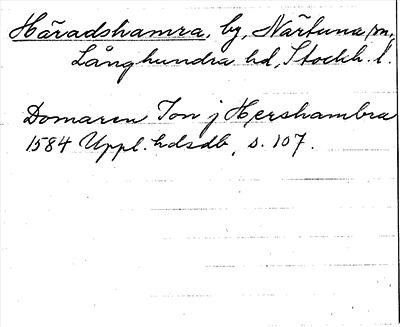 Häradshamra, by, Närtuna sn,
Långhundra hd, Stockh. l.
Domaren Jon j Hershambra
1584 Uppl. hdsdb, s. 107.